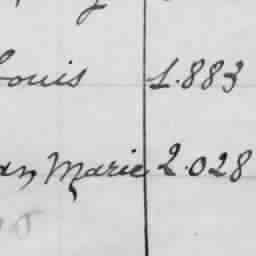 Louis 1.883
an Marie 2.028